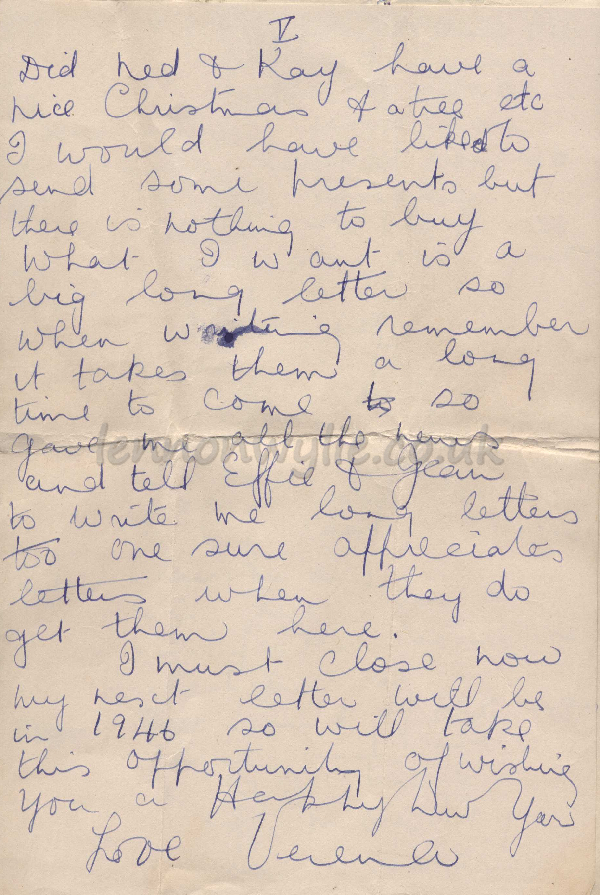 V
Did Ned & Kay have a
nice Christmas & a tree etc
I would have liked to
send some presents but
there is nothing to buy
What I want is a
big long letter so
when writing remember
it takes them a long
time to come to so
gave me all the news
and tell Effie & Jean
to write me long letters
too one sure appreciates
letters when they do
get them here.
I must close now
my next letter will be
in 1946 so will take
this opportunity of wishing
you a Happy New Year
Love Verena